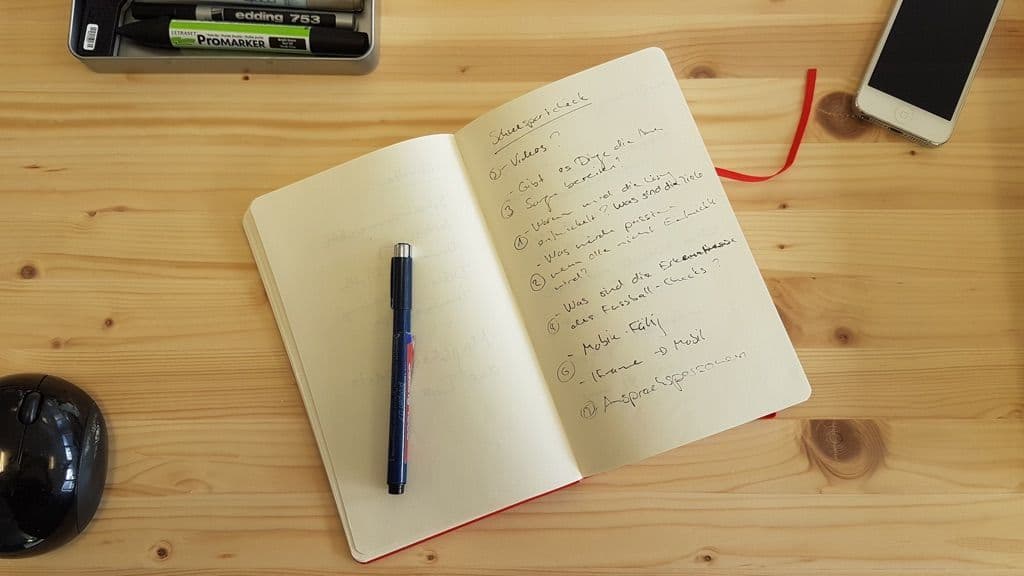 edding 753
LETRASET
PROMARKER
Schneesportcheck
- Videos?
- Gibt es Dinge die Ihnen
③ Sorgen bereiten?
- Warum wird die Lösung
① entwickelt? Was sind die Ziele
- Was würde passieren
② wenn alle nicht Entwickelt
wird?
- Was sind die
④ des Fussball-Checks?
- Mobile-Fähig
- IFrame → Mobil
Ansprechpersonen